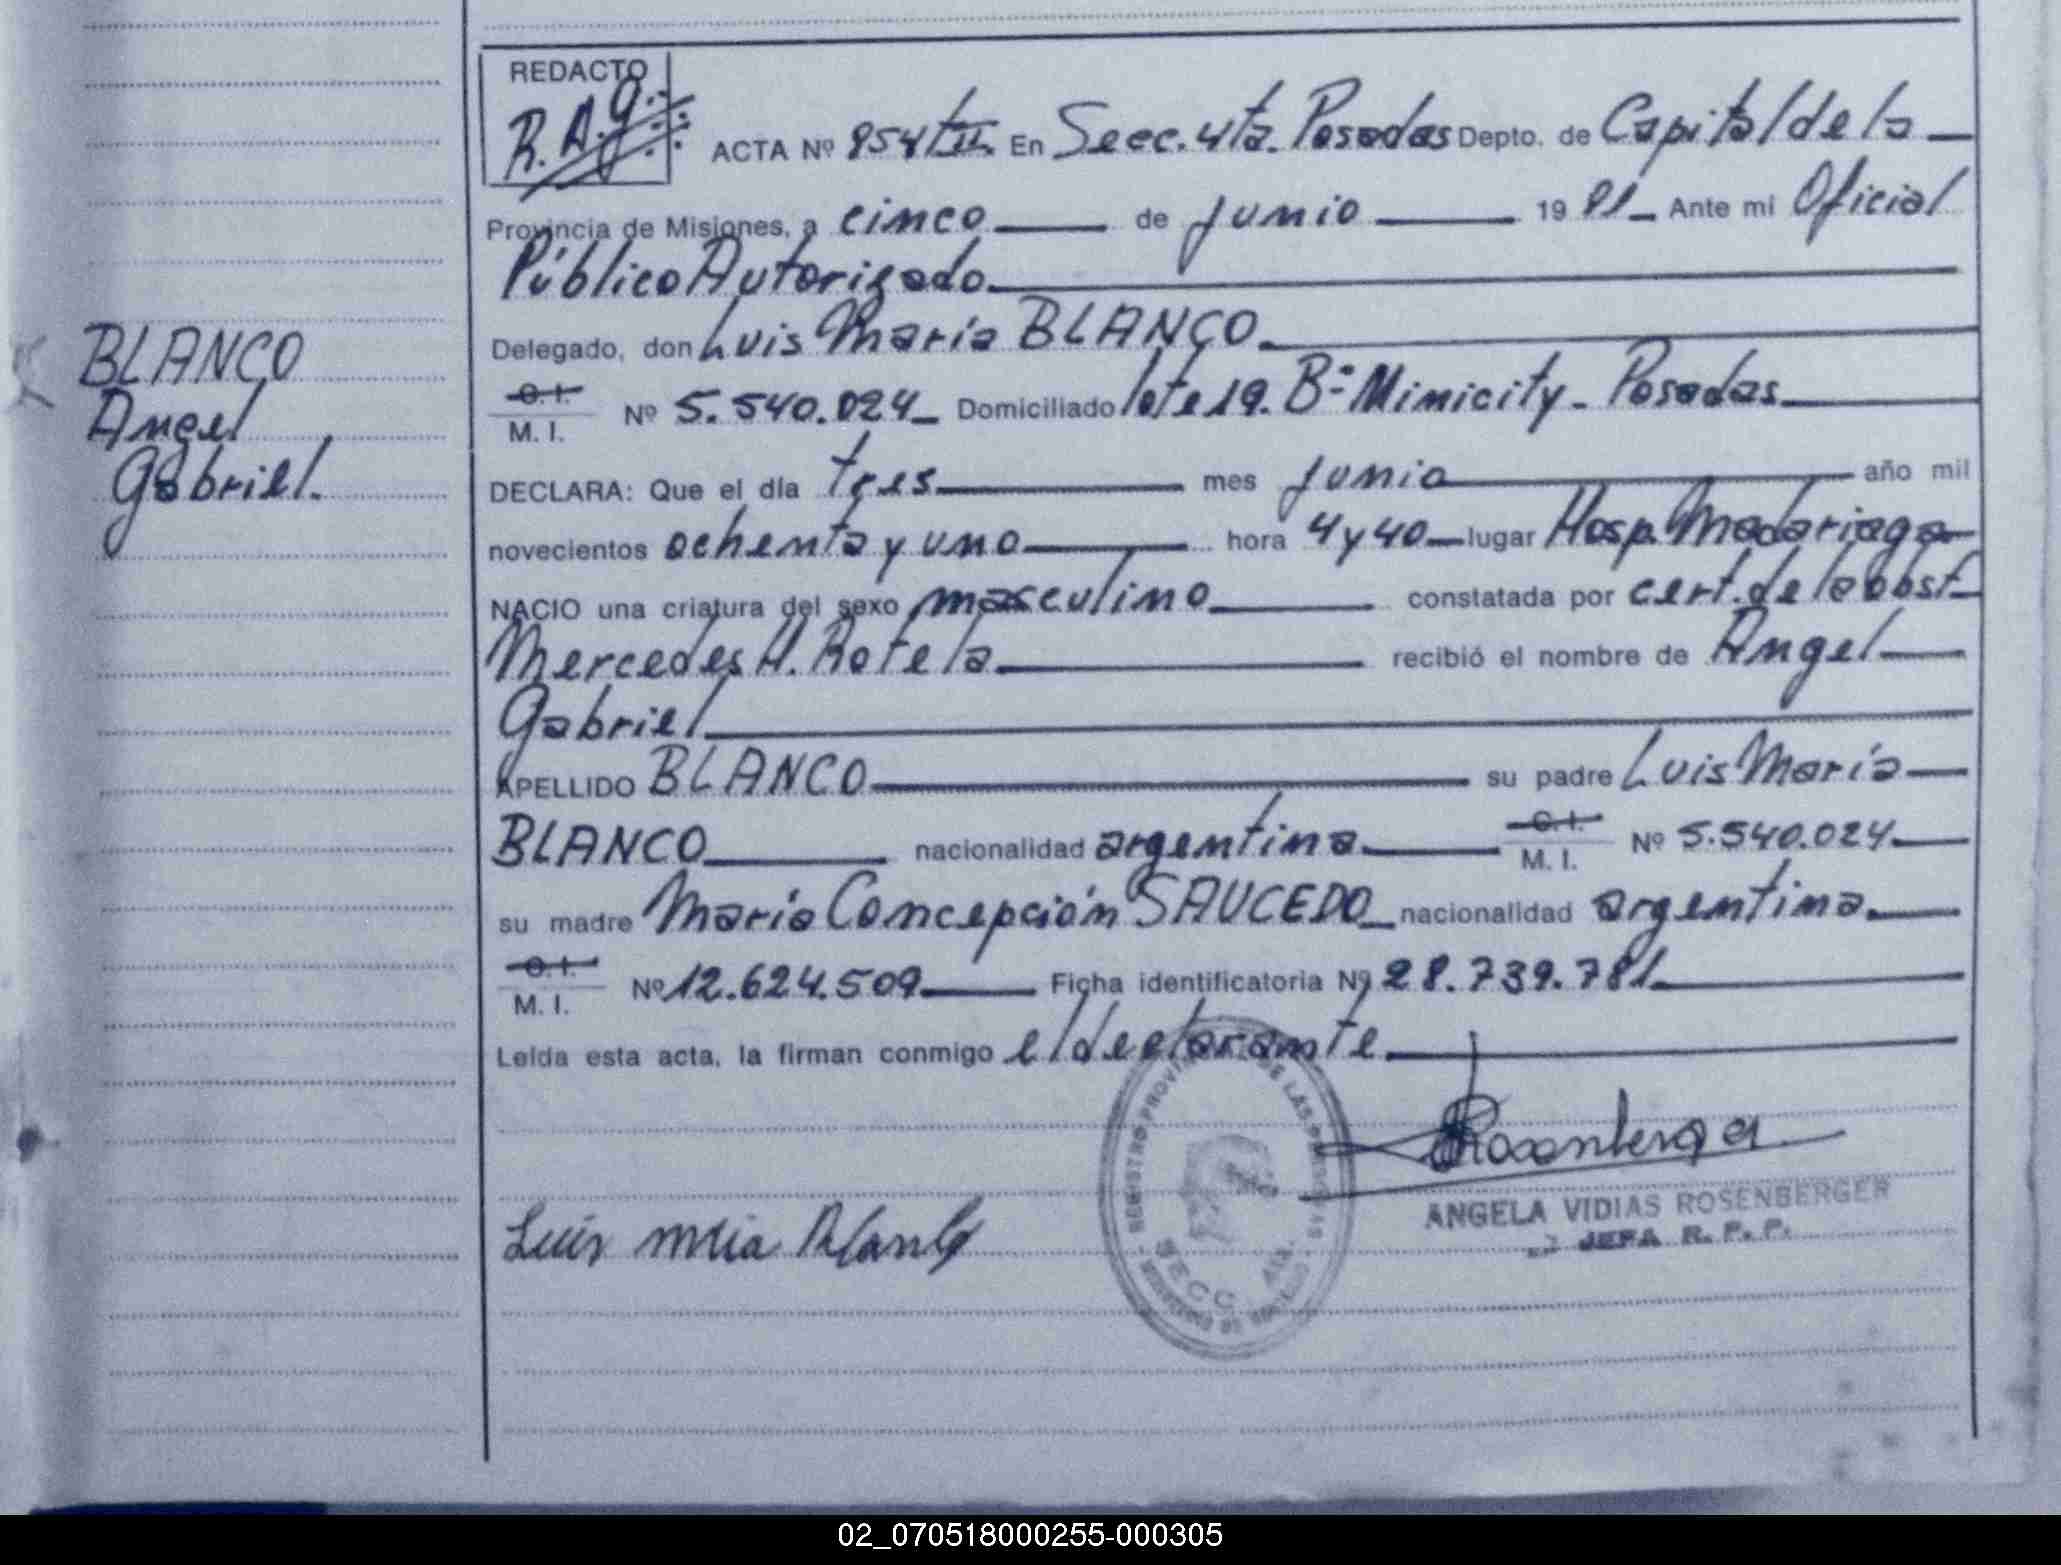 REDACTO
R. A. G.
ACTA Nº 854 t II. En Secc. 4ta. Posadas Depto. de Capital de la
Provincia de Misiones, a cinco de junio 19 81 Ante mi Oficial
Público Autorizado
Delegado, don Luis María BLANCO
C. I.
M. I. Nº 5.540.024 Domiciliado lote 19. Bº Mimicity - Posadas
BLANCO
Angel
Gabriel.
DECLARA: Que el día tres mes junio año mil
novecientos ochenta y uno hora 4 y 40 lugar Hosp. Madariaga
NACIO una criatura del sexo masculino constatada por cert. de la obst.
Mercedes H. Rotela recibió el nombre de Angel
Gabriel
APELLIDO BLANCO su padre Luis María
BLANCO nacionalidad argentina C. I. M. I. Nº 5.540.024
su madre María Concepción SAUCEDO nacionalidad argentina
C. I.
M. I. Nº 12.624.509 Ficha identificatoria Nº 28.739.781
Leída esta acta, la firman conmigo el declarante
Rosenberger
ANGELA VIDIAS ROSENBERGER
JEFA R. P. P.
Luis Mria Blanco
REGISTRO PROVINCIAL DE LAS PERSONAS
SECC. 4ta.
02_070518000255-000305